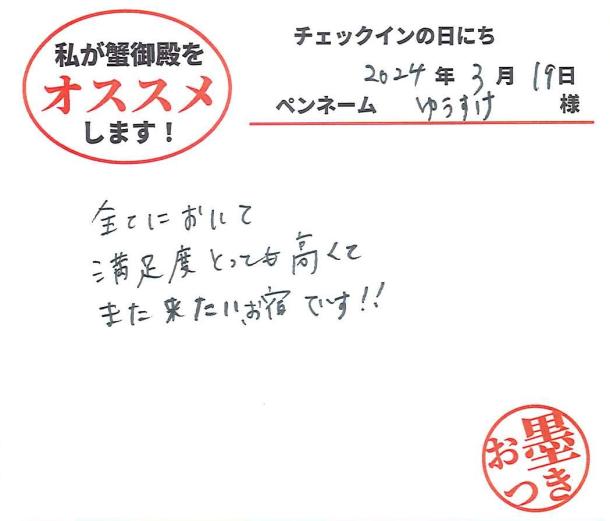 私が蟹御殿を
オススメ
します！
チェックインの日にち
2024年3月19日
ペンネーム ゆうすけ 様
全てにおいて
満足度とっても高くて
また来たいお宿です!!
お墨つき